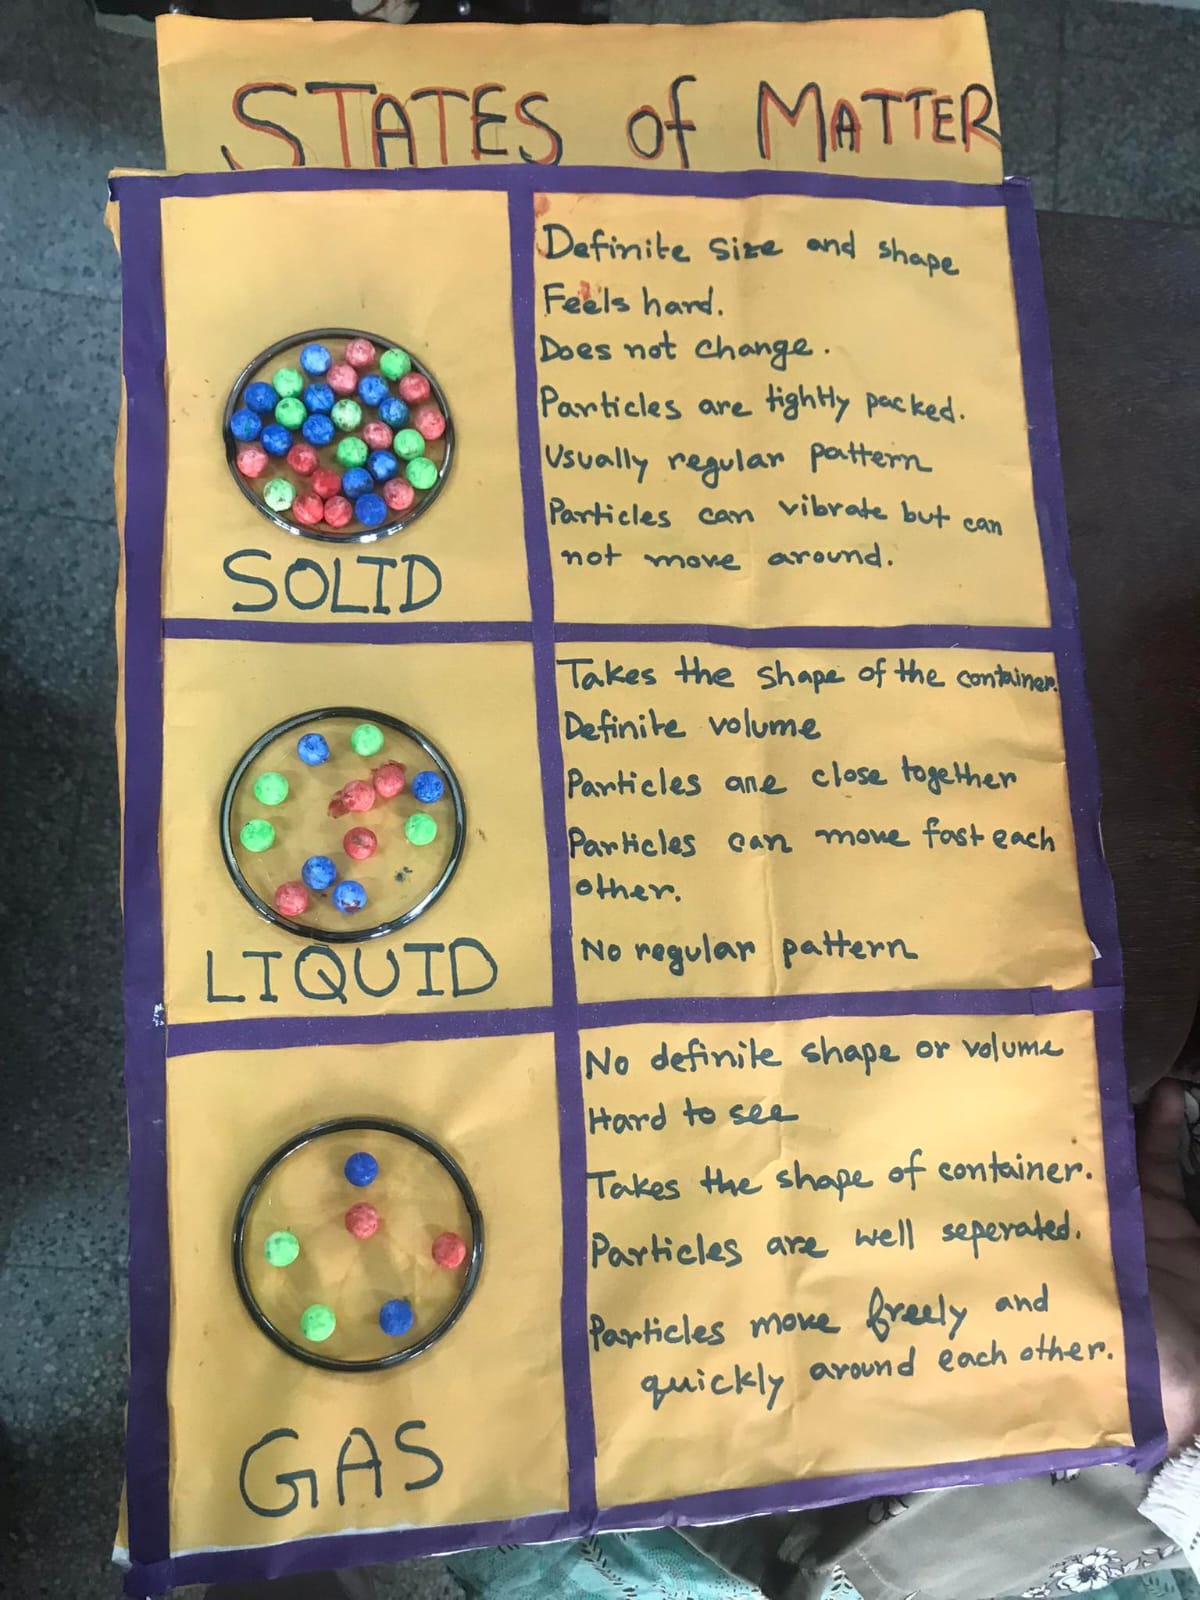 STATES of MATTER
Definite size and shape
Feels hard.
Does not change.
Particles are tightly packed.
Usually regular pattern
Particles can vibrate but can
not move around.
SOLID
Takes the shape of the container.
Definite volume
Particles are close together
Particles can move fast each
other.
No regular pattern
LIQUID
No definite shape or volume
Hard to see
Takes the shape of container.
Particles are well seperated.
Particles move freely and
quickly around each other.
GAS